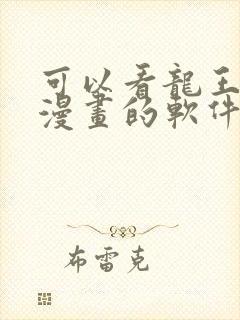 可以看龍王
漫畫的軟件
布雷克